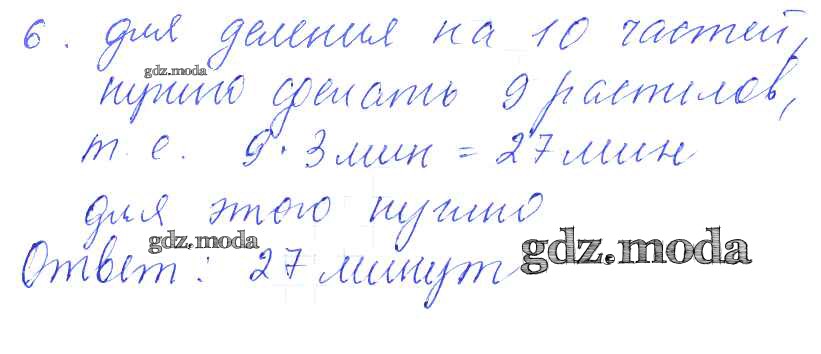 6. для деления на 10 частей,
gdz.moda
нужно сделать 9 распилов,
т.е. 9·3мин = 27мин
для этого нужно
gdz.moda
gdz.moda
Ответ: 27 минут